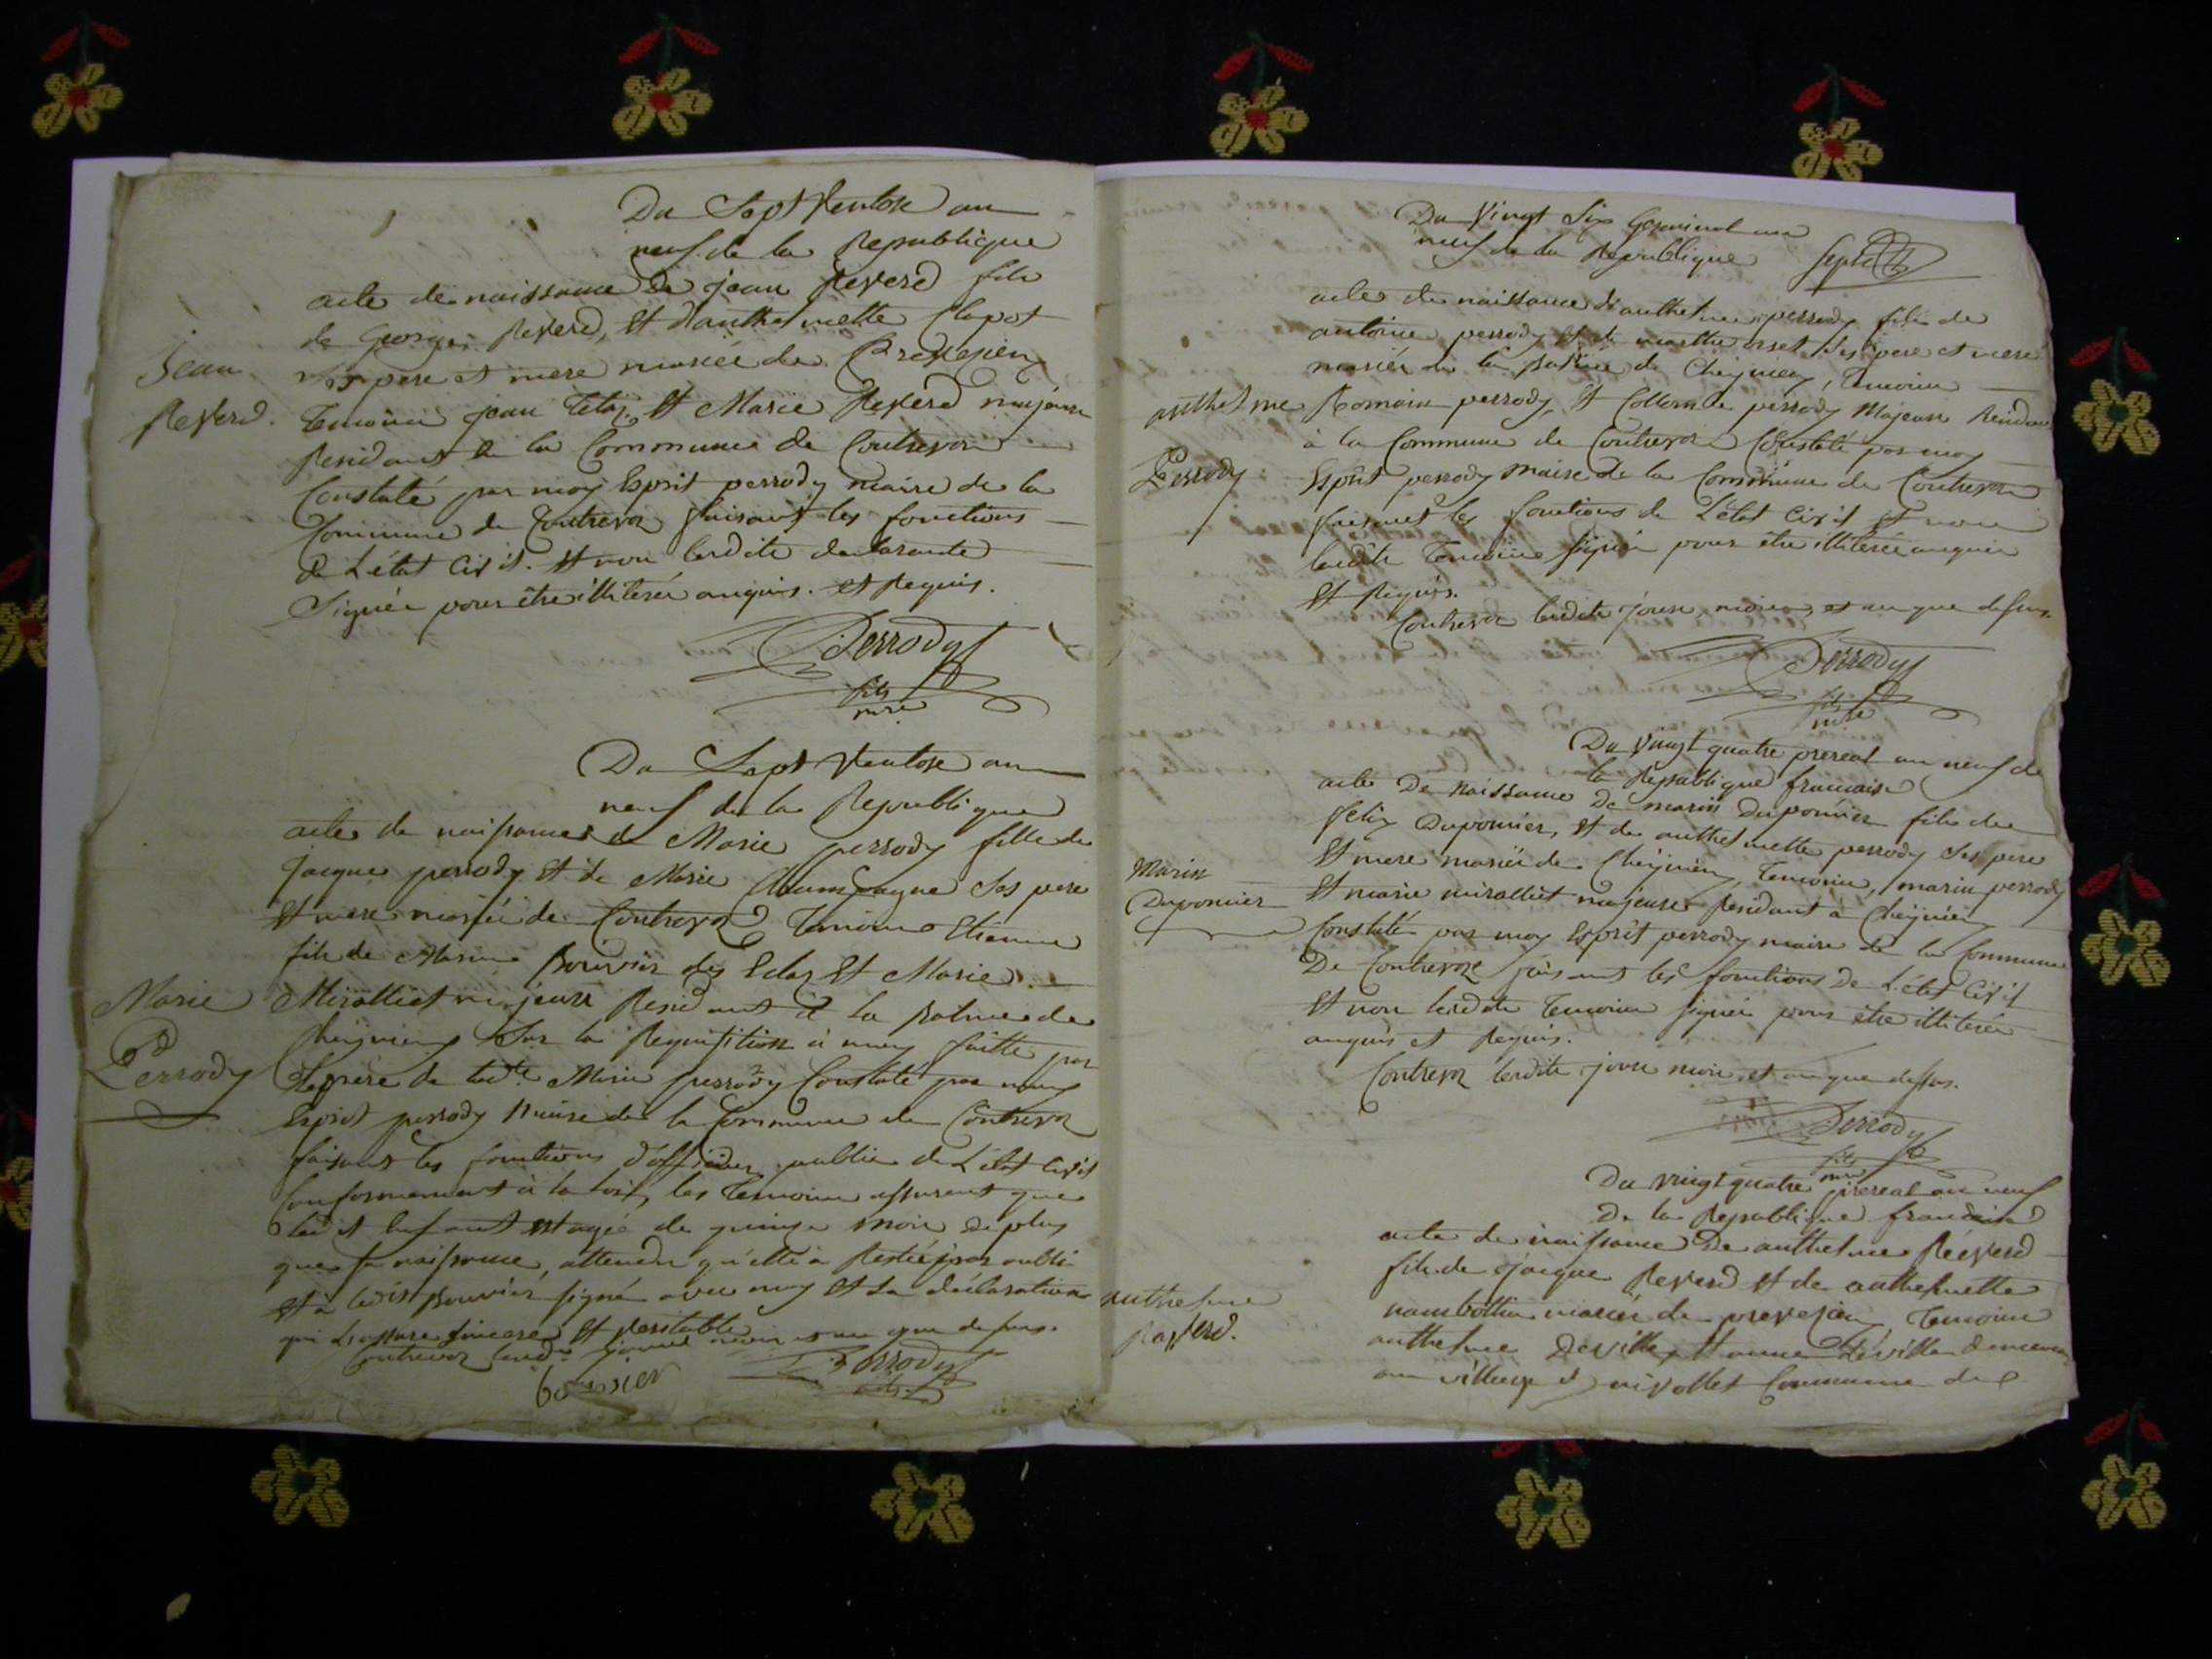 Du Sept Ventose an
neuf de la Republique
acte de naissance de jean Reverd fils
de George Reverd, et d'anthelmette Clapot
ses pere et mere mariée de Brevesieu
Temoins jean Tetaz, et Marie Reverd majeure
Residant à la Commune de Contrevoz
Constaté par moy Esprit perrody maire de la
Commune de Contrevoz faisant les fonctions
de L'état Civil. et non lesdits declarants
Signée pour être illiterée anquis. et Requis.
Jean
Reverd.
Perrody
fils
mre
Du Sept Ventose an
neuf de la Republique
acte de naissance de Marie perrody fille de
jacque perrody et de Marie Champagne ses pere
et mere mariée de Contrevoz Temoins Etienne
fils de Marin Bouvier des Eclaz et Marie
Miralliet majeure Residant à la Balme de
Cheignieu Sur la Requisition à moy faitte par
le pere de ladte Marie perrody Constaté par moy
Esprit perrody Maire de la Commune de Contrevoz
faisant les fonctions d'officier public de L'état Civil
Conformement à la loix, les Temoins assurent que
ledit Enfant est agée de quinze mois de plus
que sa naissance, attendu qu'elle à Restée par oubli
et à ledit Bouvier signé avec moy et sa déclaration
qui L'assure sincere et veritable
Contrevoz lesdits jour mois et an que dessus.
Marie
Perrody
bouvier
Perrody
fils
Du Vingt Six Germinal an
neuf de la Republique
acte de naissance d'anthelme perrody fils de
antoine perrody et de marthe ses pere et mere
mariés de la Balme de Cheignieu, Temoins
Romain perrody, et Colome perrody Majeure Residant
à la Commune de Contrevoz Constaté par moy
Esprit perrody maire de la Commune de Contrevoz
faisant les fonctions de L'état Civil et non
lesdits Temoins signée pour être illiterée anquis
et Requis.
Contrevoz lesdits jours, mois, et an que dessus.
anthelme
Perrody
Perrody
fils
mre
Du Vingt quatre prereal an neuf de
la Republique francaise
acte De Naissance De marin Duponnier fils de
felix Duponnier, et de anthelmette perrody Ses pere
et mere mariée de Cheignieu, Temoins, marin perrody
et marie miralliet majeure Residant à Cheignieu
Constaté par moy Esprit perrody maire de la Commune
De Contrevoz faisant les fonctions De L'état Civil
et non lesdits Temoins signée pour être illiterée
anquis et Requis.
Contrevoz lesdits jour mois et an que dessus.
Marin
Duponnier
Perrody
fils
mre
Du vingt quatre prereal an neuf
De la Republique francaise
acte de naissance De anthelme Réverd
fils de jacque Reverd et de anthelmette
nambottin mariée de prevesieu, Temoins
anthelme Deville, et anne deville demeurant
au village d nivollet Commune de
anthelme
Reverd.